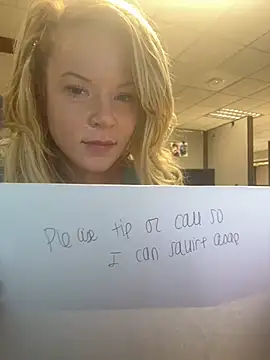 Please tip or call so
I can squirt asap